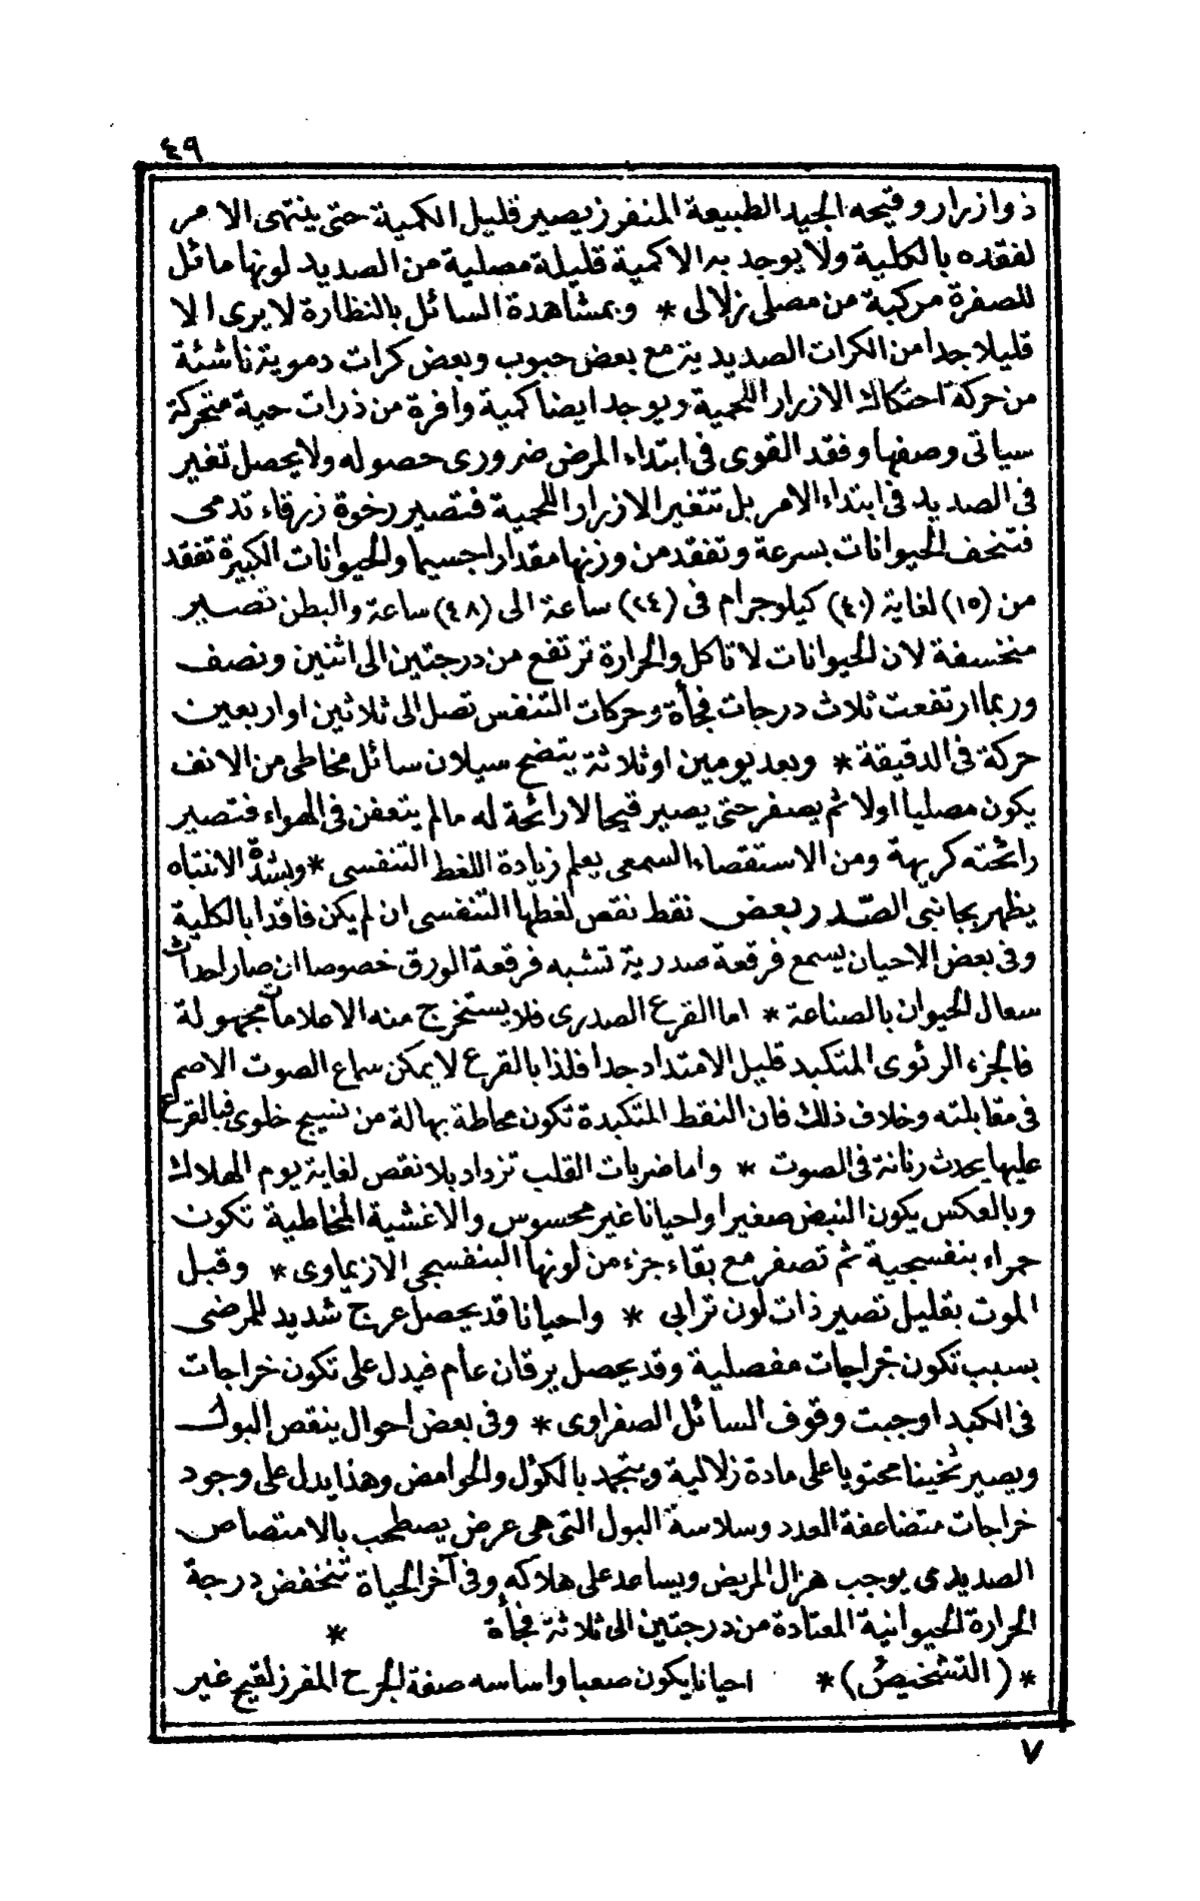 ٤٩
ذو ازرار وقيحه الجيد الطبيعة المنفرز يصير قليل الكمية حتى ينتهى الامر
لفقده بالكلية ولا يوجد به الا كمية قليلة مصلية من الصديد لونها مائل
للصفرة مركبة من مصلى زلالى * وبمشاهدة السائل بالنظارة لا يرى الا
قليلا جدا من الكرات الصديدية مع بعض حبوب وبعض كرات دموية ناشئة
من حركة احتكاك الازرار اللحمية ويوجد ايضا كمية وافرة من ذرات حية متحركة
سياتى وصفها وفقد القوى فى ابتداء المرض ضرورى حصوله ولا يحصل تغير
فى الصديد فى ابتداء الامر بل تتغير الازرار اللحمية فتصير رخوة زرقاء تدمى
فتنحف الحيوانات بسرعة وتفقد من وزنها مقدارا جسيما والحيوانات الكبيرة تفقد
من (١٥) لغاية (٤٠) كيلوجرام فى (٢٤) ساعة الى (٤٨) ساعة والبطن تصير
منخسفة لان الحيوانات لا تاكل والحرارة ترتفع من درجتين الى اثنين ونصف
وربما ارتفعت ثلاث درجات فجأة وحركات التنفس تصل الى ثلاثين او اربعين
حركة فى الدقيقة * وبعد يومين او ثلاثة يتضح سيلان سائل مخاطى من الانف
يكون مصليا اولا ثم يصفر حتى يصير قيحا لا رائحة له ما لم يتعفن فى الهواء فتصير
رائحته كريهة ومن الاستقصاء السمعى يعلم زيادة اللغط التنفسى * وبشدة الانتباه
يظهر بجانبى الصّدر بعض نقط نقص لغطها التنفسى ان لم يكن فاقدا بالكلية
وفى بعض الاحيان يسمع فرقعة صدرية تشبه فرقعة الورق خصوصا ان صار احداث
سعال الحيوان بالصناعة * اما القرع الصدرى فلا يستخرج منه الا علامات مجهولة
فالجزء الرئوى المتكبد قليل الامتداد جدا فلذا بالقرع لا يمكن سماع الصوت الاصم
فى مقابلته وخلاف ذلك فان النقط المتكبدة تكون محاطة بهالة من نسيج خلوى فبالقرع
عليها يحدث رنانة فى الصوت * واما ضربات القلب تزداد بلا نقص لغاية يوم الهلاك
وبالعكس يكون النبض صغيرا واحيانا غير محسوس والاغشية المخاطية تكون
حمراء بنفسجية ثم تصفر مع بقاء جزء من لونها البنفسجى الازيماوى * وقبل
الموت بقليل تصير ذات لون ترابي * واحيانا قد يحصل عرج شديد للمرضى
بسبب تكون خراجات مفصلية وقد يحصل يرقان عام فيدل على تكون خراجات
فى الكبد اوجبت وقوف السائل الصفراوى * وفى بعض احوال ينقص البول
ويصير ثخينا محتويا على مادة زلالية ويتجمد بالكؤل والحوامض وهذا يدل على وجود
خراجات متضاعفة العدد وسلاسة البول التى هى عرض يصطحب بالامتصاص
الصديدى يوجب هزال المريض ويساعد على هلاكه وفى آخر الحياة تنخفض درجة
الحرارة الحيوانية المعتادة من درجتين الى ثلاثة فجأة *
* (التشخيص) * احيانا يكون صعبا واساسه صفة الجرح المفرز لقيح غير
٧